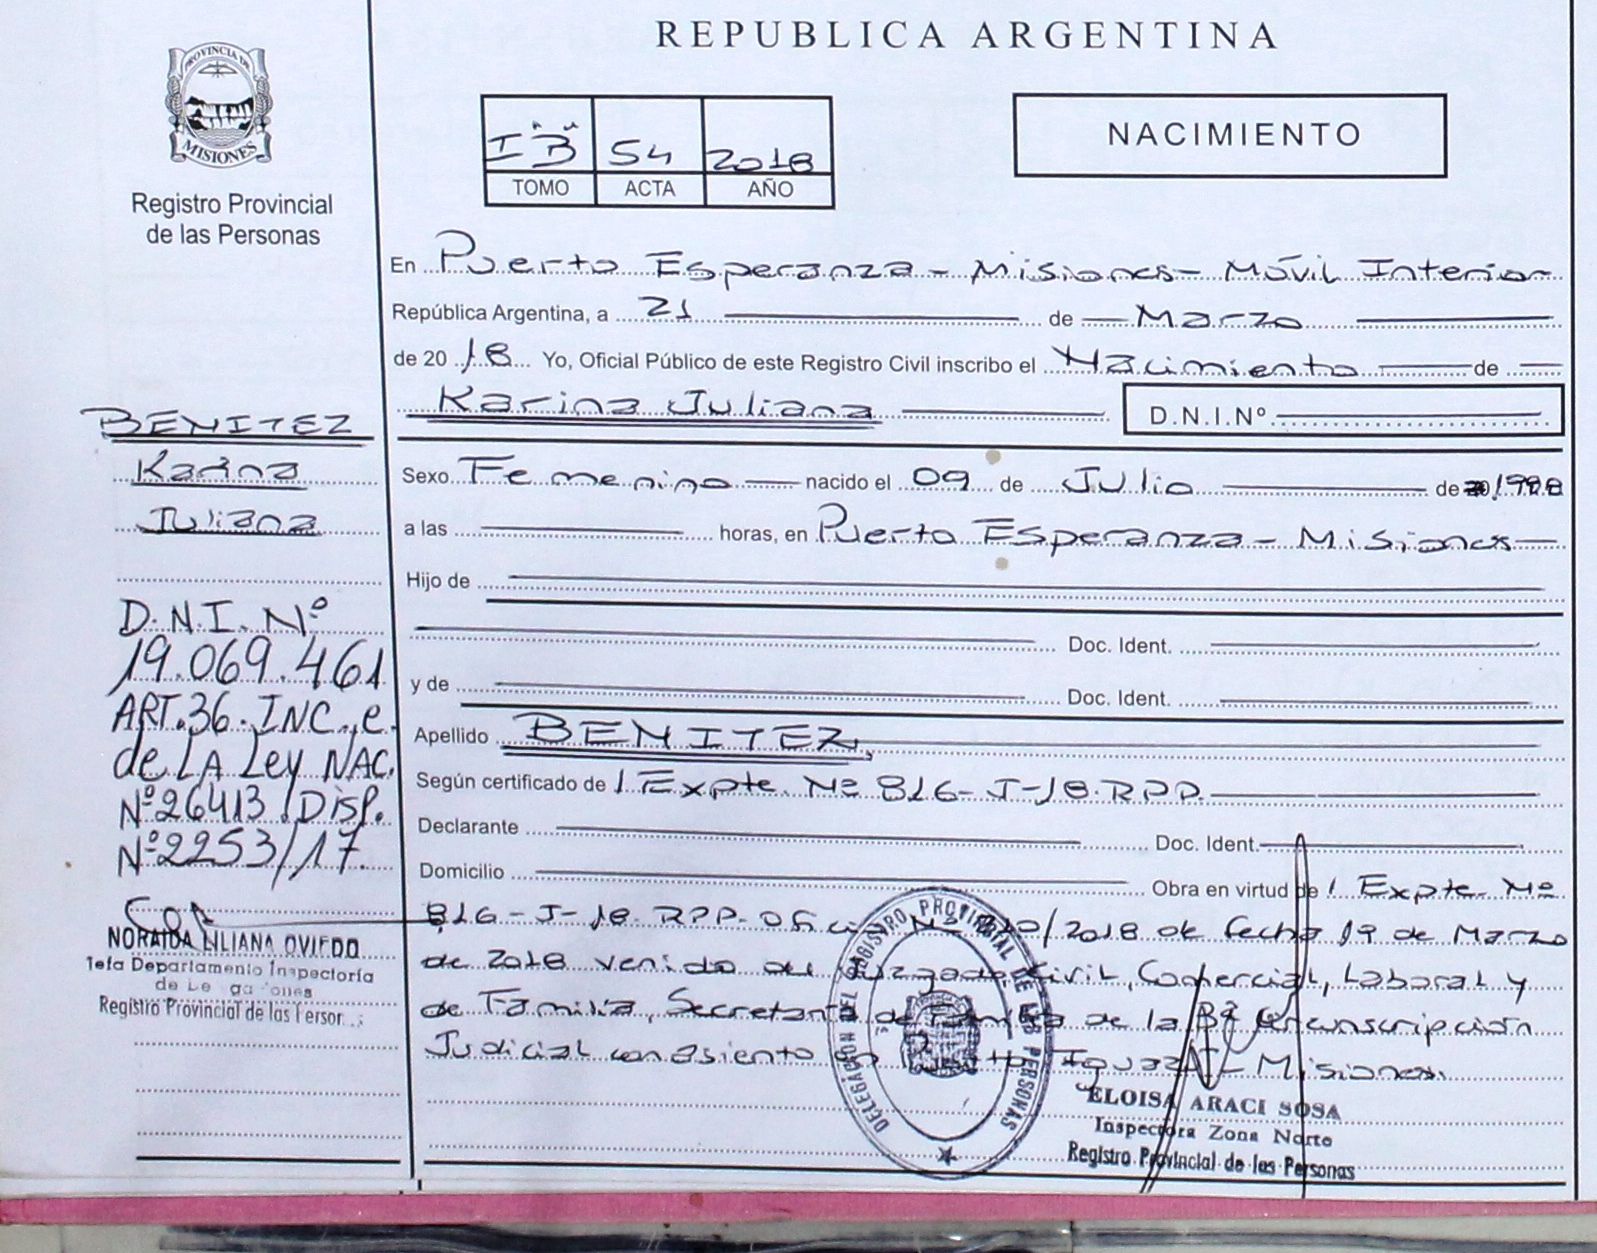 REPUBLICA ARGENTINA
PROVINCIA DE
MISIONES
Registro Provincial
de las Personas
I "B" 54 2018
TOMO ACTA AÑO
NACIMIENTO
En Puerto Esperanza - Misiones - Móvil Interior
República Argentina, a 21 de Marzo
de 20 18 Yo, Oficial Público de este Registro Civil inscribo el Nacimiento de
Karina Juliana D.N.I.Nº
BENITEZ
Karina
Juliana
D.N.I. Nº
19.069.461
ART. 36. INC. e.
de LA Ley NAC.
Nº 26413. Disp.
Nº 2253/17.
NORAIDA LILIANA OVIEDO
Jefa Departamento Inspectoría
Registro Provincial de las Person
Sexo Femenino nacido el 09 de Julio de
a las horas, en Puerto Esperanza - Misiones
Hijo de
Doc. Ident.
y de Doc. Ident.
Apellido BENITEZ
Según certificado de / Expte. Nº 816-J-18-RPP.
Declarante Doc. Ident.
Domicilio Obra en virtud de / Expte. Nº
816-J-18-RPP- Oficio Nº /2018 de fecha 19 de Marzo
de 2018 venido del Juzgado Civil, Comercial, Laboral y
de Familia, Secretaría de Familia de la 3ª Circunscripción
Judicial con asiento en Puerto Iguazú - Misiones.
DELEGACION DEL REGISTRO PROVINCIAL DE LAS PERSONAS
ELOISA ARACI SOSA
Inspectora Zona Norte
Registro Provincial de las Personas